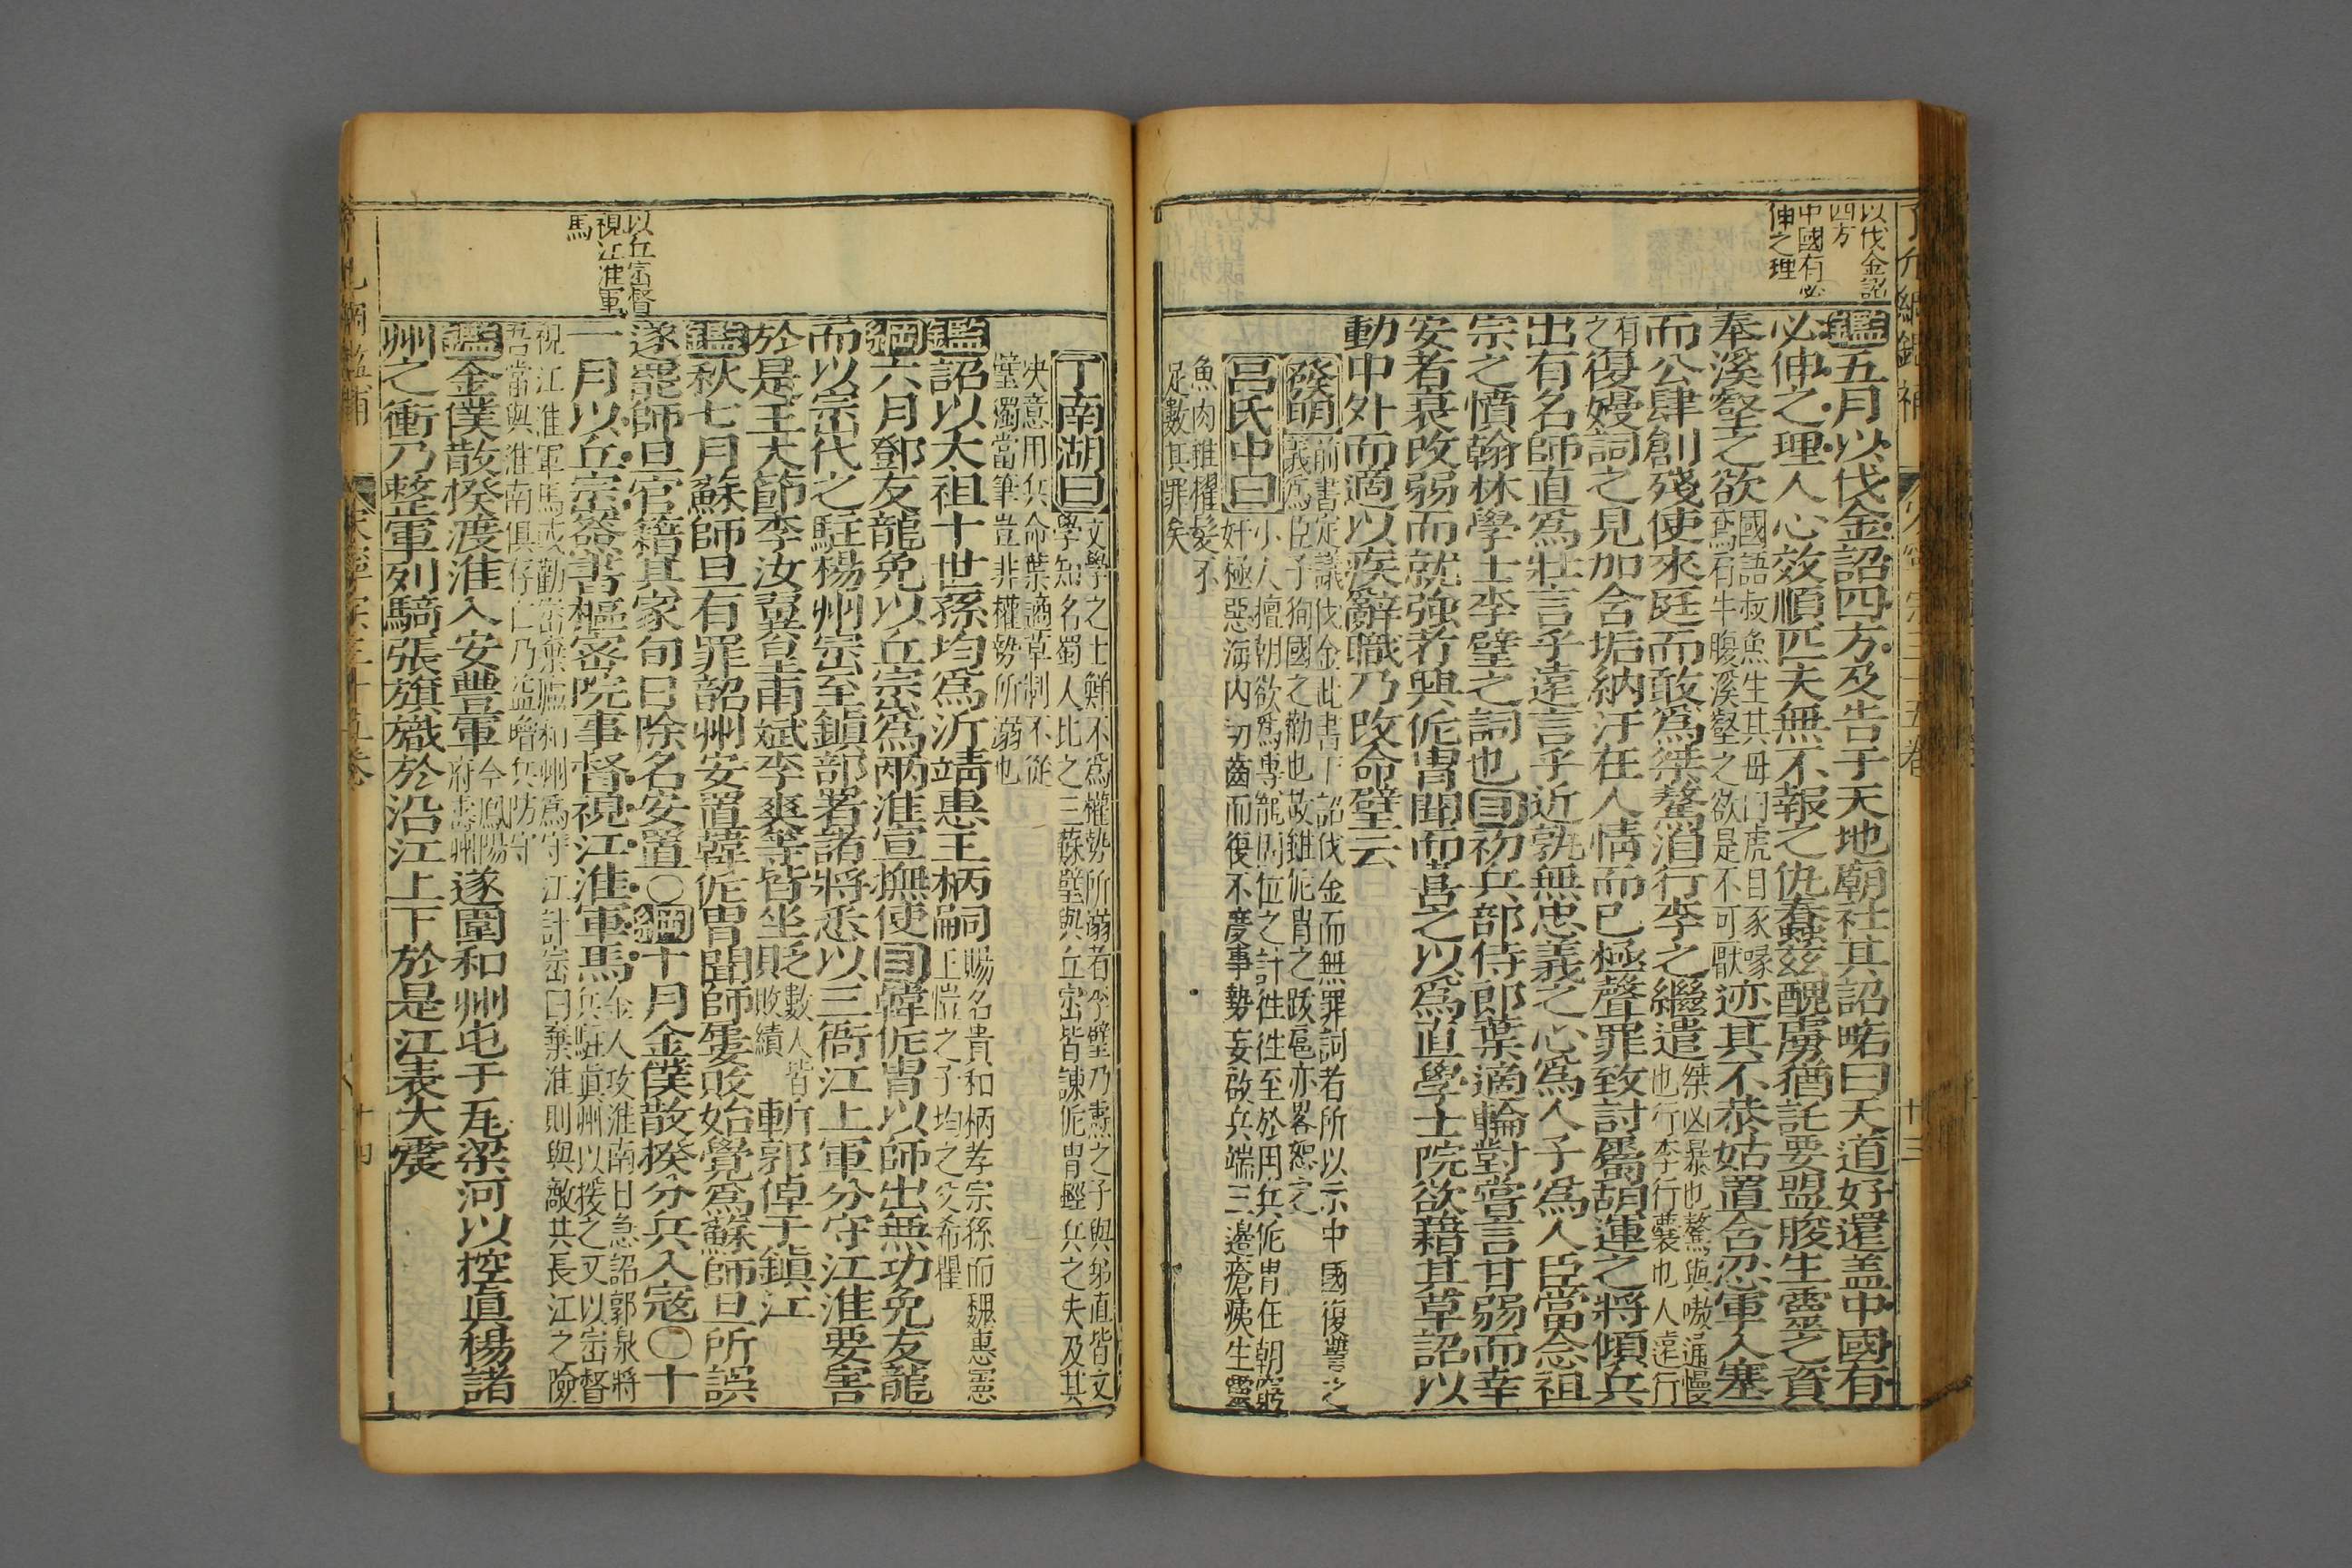 以伐金詔
四方
中國有必
伸之理
鑑五月以伐金詔四方及告于天地廟社其詔略曰天道好還盖中國有
必伸之理人心效順匹夫無不報之仇蠢玆醜虜猶託要盟朘生靈之資
奉溪壑之欲國語叔魚生其母曰虎目豕喙鳶肩牛腹溪壑之欲是不可厭迹其不恭姑置含忍軍入塞
而公肆創殘使來庭而敢爲桀驁洎行李之繼遣桀凶暴也驁與嗷通慢也行李行裝也人遠行
有之復嫚詞之見加含垢納汙在人情而已極聲罪致討屬胡運之將傾兵
出有名師直爲壯言乎遠言乎近孰無忠義之心爲人子爲人臣當念祖
宗之憤翰林學士李壁之詞也目初兵部侍郎葉適輪對嘗言甘弱而幸
安者衰改弱而就強者興侂胄聞而喜之以爲直學士院欲藉其草詔以
動中外而適以疾辭職乃改命壁云
發明前書定議伐金此書下詔伐金而無罪詞者所以示中國復讐之
義爲臣子狥國之勸也故雖侂胄之䟦扈亦畧恕之
呂氏中曰小人擅朝欲爲專寵固位之計徃徃至於用兵侂胄任朝竊
奸極惡海内切齒而復不度事勢妄啟兵端三邉瘡痍生靈
魚肉雖擢髮不
足數其罪矣
了凡綱鑑補
宋寧宗三十五卷
廿三
丁南湖曰文學之士鮮不爲權勢所溺者李壁乃燾之子與弟直皆文
學知名蜀人比之三蘇壁與丘崈皆諫侂胄輕兵之失及其
决意用兵命葉適草制不從
壁濁當筆豈非權勢所溺也
鑑詔以太祖十世孫均爲沂靖惠王柄嗣賜名貴和柄孝宗孫而魏惠憲王愷之子均之父希瞿
綱六月鄧友龍免以丘崈爲兩淮宣撫使目韓侂胄以師出無功免友龍
而以崈代之駐楊州崈至鎮部署諸將悉以三衙江上軍分守江淮要害
於是王大節李汝翼皇甫斌李爽等皆坐貶數人皆敗績斬郭倬于鎮江
鑑秋七月蘇師旦有罪韶州安置韓侂胄聞師屡敗始覺爲蘇師旦所誤
遂罷師旦官籍其家旬日除名安置〇綱十月金僕散揆分兵入寇〇十
以丘崈督
視江淮軍
馬
一月以丘崈簽書樞密院事督視江淮軍馬金人攻淮南日急詔郭泉將兵駐真州以援之又以崈督
視江淮軍馬或勸崈棄廬和州爲守江計崈曰棄淮則與敵共長江之險
吾當與淮南俱存亡乃益增兵防守
鑑金僕散揆渡淮入安豐軍今鳳陽府壽州遂圍和州屯于瓦梁河以控真楊諸
州之衝乃整軍列騎張旗幟於沿江上下於是江表大震
宋寧宗三十五卷
十四